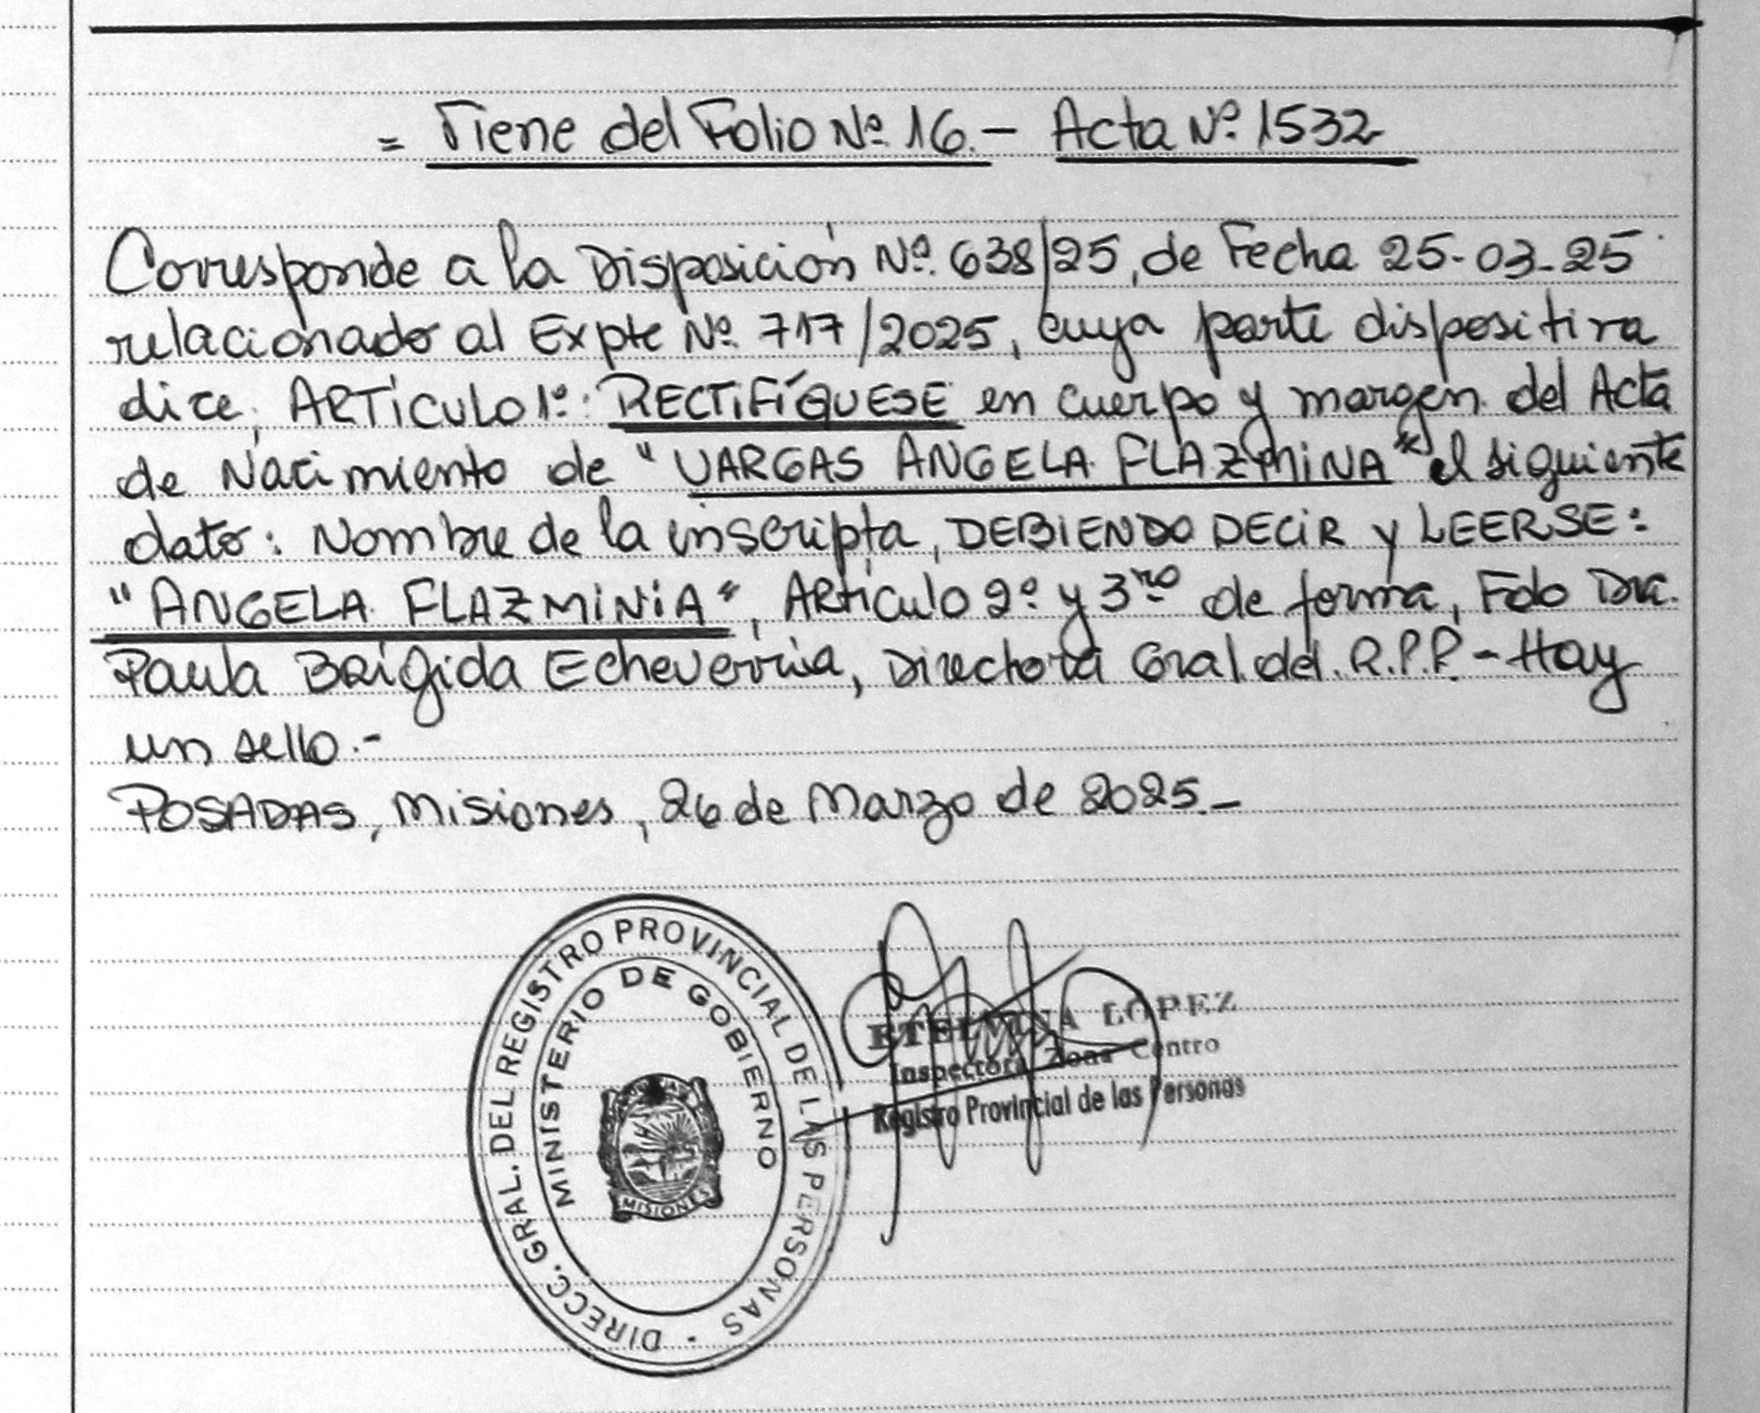 = Viene del Folio Nº 16.- Acta Nº 1532
Corresponde a la Disposición Nº. 638/25, de Fecha 25-03-25
relacionado al Expte Nº. 717/2025, cuya parte dispositiva
dice, ARTÍCULO 1º: RECTIFÍQUESE en cuerpo y margen del Acta
de Nacimiento de "VARGAS ANGELA FLAZMINA" el siguiente
dato: Nombre de la inscripta, DEBIENDO DECIR y LEERSE:
"ANGELA FLAZMINIA", Artículo 2º y 3ro de forma, Fdo Dra.
Paula Brígida Echeverria, Directora Gral. del. R.P.P. - Hay
un sello.-
POSADAS, Misiones, 26 de Marzo de 2025.-
DIRECC. GRAL. DEL REGISTRO PROVINCIAL DE LAS PERSONAS
MINISTERIO DE GOBIERNO
MISIONES
ETELVINA LOPEZ
Inspectora Zona Centro
Registro Provincial de las Personas